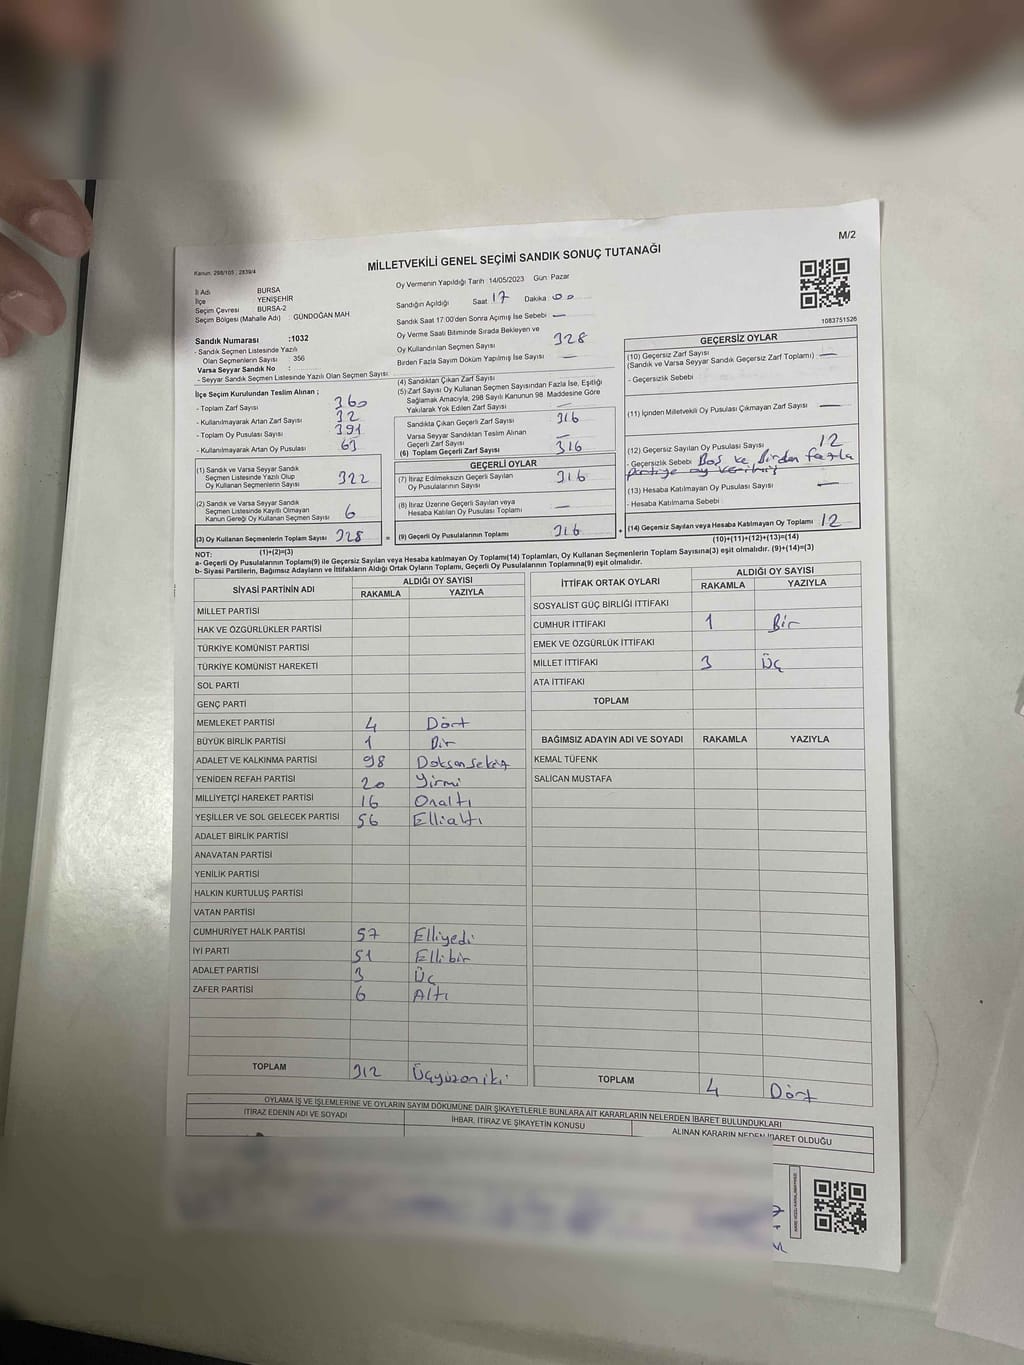 M/2
MİLLETVEKİLİ GENEL SEÇİMİ SANDIK SONUÇ TUTANAĞI
Kanun: 298/105 , 2839/4
İl Adı BURSA
İlçe YENİŞEHİR
Seçim Çevresi BURSA-2
Seçim Bölgesi (Mahalle Adı) : GÜNDOĞAN MAH
Sandık Numarası :1032
- Sandık Seçmen Listesinde Yazılı
Olan Seçmenlerin Sayısı 356
Varsa Seyyar Sandık No :
- Seyyar Sandık Seçmen Listesinde Yazılı Olan Seçmen Sayısı:
İlçe Seçim Kurulundan Teslim Alınan ;
- Toplam Zarf Sayısı 360
- Kullanılmayarak Artan Zarf Sayısı 32
- Toplam Oy Pusulası Sayısı 391
- Kullanılmayarak Artan Oy Pusulası 63
(1) Sandık ve Varsa Seyyar Sandık
Seçmen Listesinde Yazılı Olup
Oy Kullanan Seçmenlerin Sayısı 322
(2) Sandık ve Varsa Seyyar Sandık
Seçmen Listesinde Kayıtlı Olmayan
Kanun Gereği Oy Kullanan Seçmen Sayısı 6
(3) Oy Kullanan Seçmenlerin Toplam Sayısı 328
(1)+(2)=(3)
Oy Vermenin Yapıldığı Tarih :14/05/2023 Gün: Pazar
Sandığın Açıldığı Saat 17 Dakika 00
Sandık Saat 17:00'den Sonra Açımış İse Sebebi —
Oy Verme Saati Bitiminde Sırada Bekleyen ve
Oy Kullandırılan Seçmen Sayısı 328
Birden Fazla Sayım Döküm Yapılmış İse Sayısı —
(4) Sandıktan Çıkan Zarf Sayısı
(5) Zarf Sayısı Oy Kullanan Seçmen Sayısından Fazla İse, Eşitliği
Sağlamak Amacıyla, 298 Sayılı Kanunun 98. Maddesine Göre
Yakılarak Yok Edilen Zarf Sayısı —
Sandıkta Çıkan Geçerli Zarf Sayısı 316
Varsa Seyyar Sandıktan Teslim Alınan
Geçerli Zarf Sayısı —
(6) Toplam Geçerli Zarf Sayısı 316
GEÇERLİ OYLAR
(7) İtiraz Edilmeksizin Geçerli Sayılan
Oy Pusulalarının Sayısı 316
(8) İtiraz Üzerine Geçerli Sayılan veya
Hesaba Katılan Oy Pusulası Toplamı —
= (9) Geçerli Oy Pusulalarının Toplamı 316
1083751526
GEÇERSİZ OYLAR
(10) Geçersiz Zarf Sayısı —
(Sandık ve Varsa Seyyar Sandık Geçersiz Zarf Toplamı)
- Geçersizlik Sebebi
(11) İçinden Milletvekili Oy Pusulası Çıkmayan Zarf Sayısı —
(12) Geçersiz Sayılan Oy Pusulası Sayısı 12
- Geçersizlik Sebebi Boş ve Birden fazla
partiye oy verilmiş
(13) Hesaba Katılmayan Oy Pusulası Sayısı —
- Hesaba Katılmama Sebebi
+ (14) Geçersiz Sayılan veya Hesaba Katılmayan Oy Toplamı 12
(10)+(11)+(12)+(13)=(14)
NOT:
a- Geçerli Oy Pusulalarının Toplamı(9) ile Geçersiz Sayılan veya Hesaba katılmayan Oy Toplamı(14) Toplamları, Oy Kullanan Seçmenlerin Toplam Sayısına(3) eşit olmalıdır. (9)+(14)=(3)
b- Siyasi Partilerin, Bağımsız Adayların ve İttifakların Aldığı Ortak Oyların Toplamı, Geçerli Oy Pusulalarının Toplamına(9) eşit olmalıdır.
SİYASİ PARTİNİN ADI ALDIĞI OY SAYISI
RAKAMLA YAZIYLA
MİLLET PARTİSİ
HAK VE ÖZGÜRLÜKLER PARTİSİ
TÜRKİYE KOMÜNİST PARTİSİ
TÜRKİYE KOMÜNİST HAREKETİ
SOL PARTİ
GENÇ PARTİ
MEMLEKET PARTİSİ 4 Dört
BÜYÜK BİRLİK PARTİSİ 1 Bir
ADALET VE KALKINMA PARTİSİ 98 Doksansekiz
YENİDEN REFAH PARTİSİ 20 Yirmi
MİLLİYETÇİ HAREKET PARTİSİ 16 Onaltı
YEŞİLLER VE SOL GELECEK PARTİSİ 56 Ellialtı
ADALET BİRLİK PARTİSİ
ANAVATAN PARTİSİ
YENİLİK PARTİSİ
HALKIN KURTULUŞ PARTİSİ
VATAN PARTİSİ
CUMHURİYET HALK PARTİSİ 57 Elliyedi
İYİ PARTİ 51 Ellibir
ADALET PARTİSİ 3 Üç
ZAFER PARTİSİ 6 Altı
TOPLAM 312 Üçyüzoniki
İTTİFAK ORTAK OYLARI ALDIĞI OY SAYISI
RAKAMLA YAZIYLA
SOSYALİST GÜÇ BİRLİĞİ İTTİFAKI
CUMHUR İTTİFAKI 1 Bir
EMEK VE ÖZGÜRLÜK İTTİFAKI
MİLLET İTTİFAKI 3 Üç
ATA İTTİFAKI
TOPLAM
BAĞIMSIZ ADAYIN ADI VE SOYADI RAKAMLA YAZIYLA
KEMAL TÜFENK
SALİCAN MUSTAFA
TOPLAM 4 Dört
OYLAMA İŞ VE İŞLEMLERİNE VE OYLARIN SAYIM DÖKÜMÜNE DAİR ŞİKAYETLERLE BUNLARA AİT KARARLARIN NELERDEN İBARET BULUNDUKLARI
İTİRAZ EDENİN ADI VE SOYADI İHBAR, İTİRAZ VE ŞİKAYETİN KONUSU ALINAN KARARIN NEDEN İBARET OLDUĞU